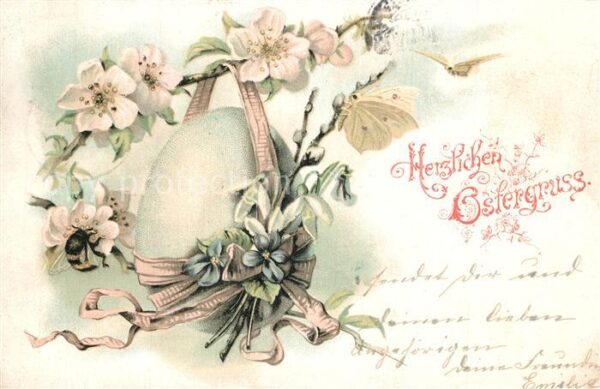 Herzlichen
Ostergruss.
sendet Dir und
deinen lieben
Angehörigen
deine Freundin
Emilie